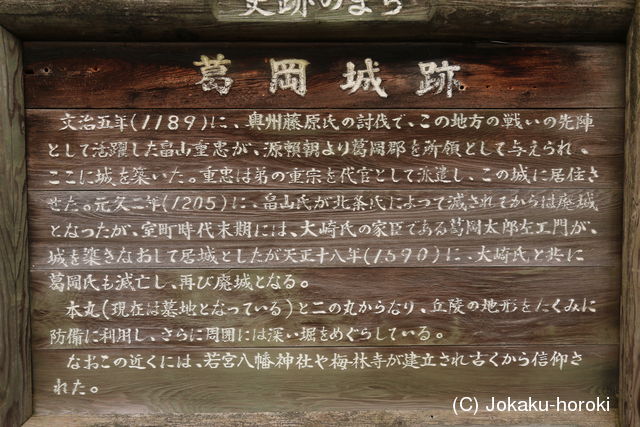 史跡のまち
葛岡城跡
文治五年(1189)に、奥州藤原氏の討伐で、この地方の戦いの先陣
として活躍した畠山重忠が、源頼朝より葛岡郡を所領として与えられ、
ここに城を築いた。重忠は弟の重宗を代官として派遣し、この城に居住さ
せた。元久二年(1205)に、畠山氏が北条氏によって滅されてからは廃城
となったが、室町時代末期には、大崎氏の家臣である葛岡太郎左エ門が、
城を築きなおして居城としたが天正十八年(1590)に、大崎氏と共に
葛岡氏も滅亡し、再び廃城となる。
本丸(現在は墓地となっている)と二の丸からなり、丘陵の地形をたくみに
防備に利用し、さらに周囲には深い堀をめぐらしている。
なおこの近くには、若宮八幡神社や梅林寺が建立され古くから信仰さ
れた。
(C) Jokaku-horoki